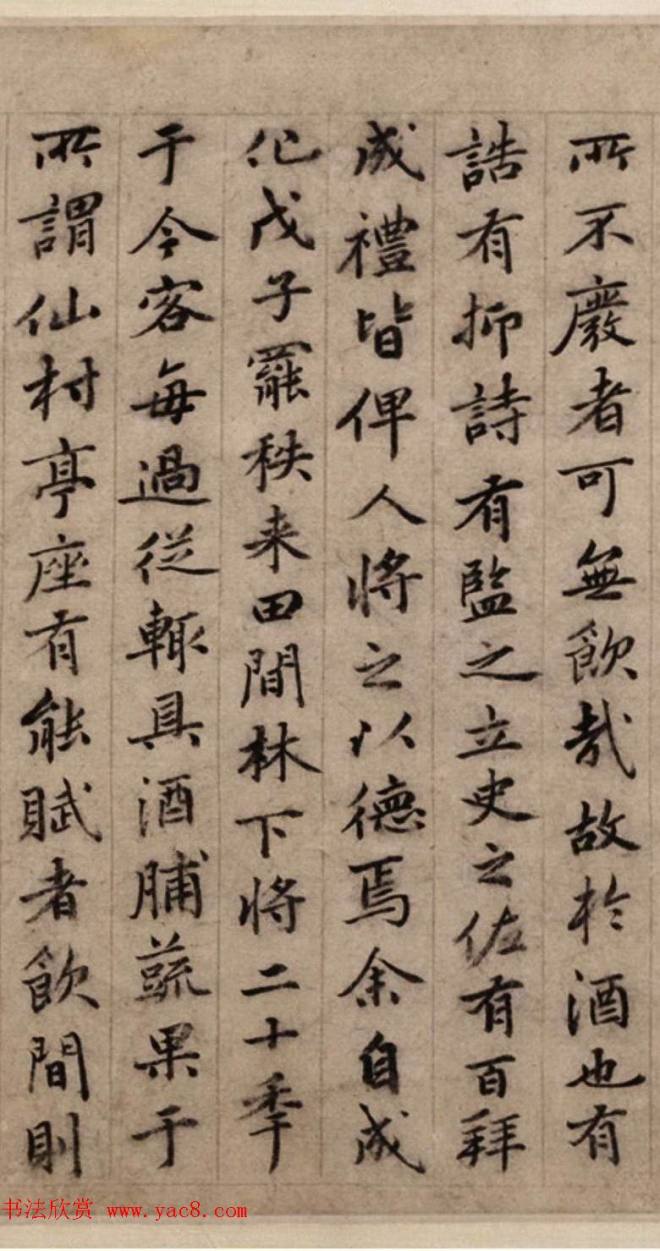 所不廢者可無飲哉故於酒也有
誥有抑詩有監之立史之佐有百拜
成禮皆俾人將之以德焉余自成
化戊子罷秩来田間林下將二十季
于今客每過從輙具酒脯蔬果于
所謂仙村亭座有能賦者飲間則
书法欣赏 www.yac8.com